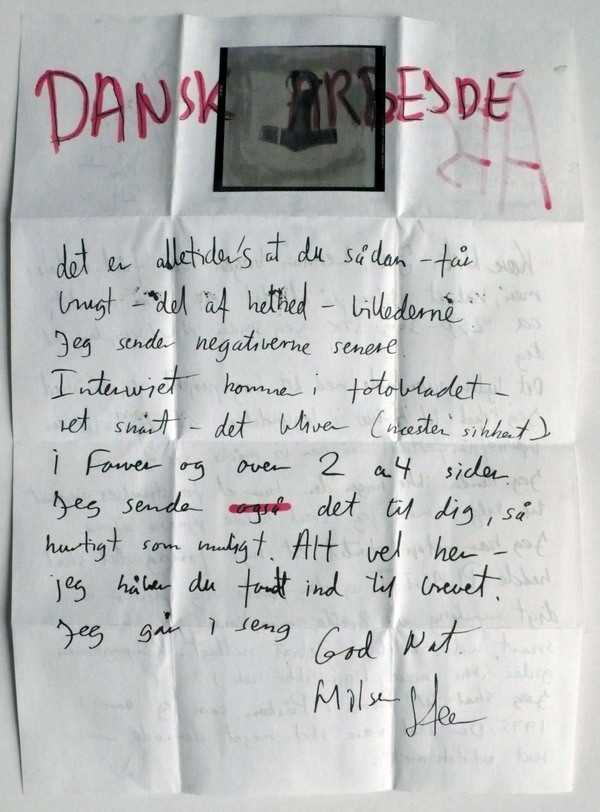 DANSK ARBEJDE
det er alletider's at du sådan - får
brugt - del af helhed - billederne.
Jeg sender negativerne senere.
Interviet komme i fotobladet -
ret snart - det bliver (næsten sikkert)
i Farver og over 2 a4 sider.
Jeg sender også det til dig, så
hurtigt som muligt. Alt vel her -
jeg håber du fandt ind til brevet.
Jeg går i seng
God Nat.
Hilsen